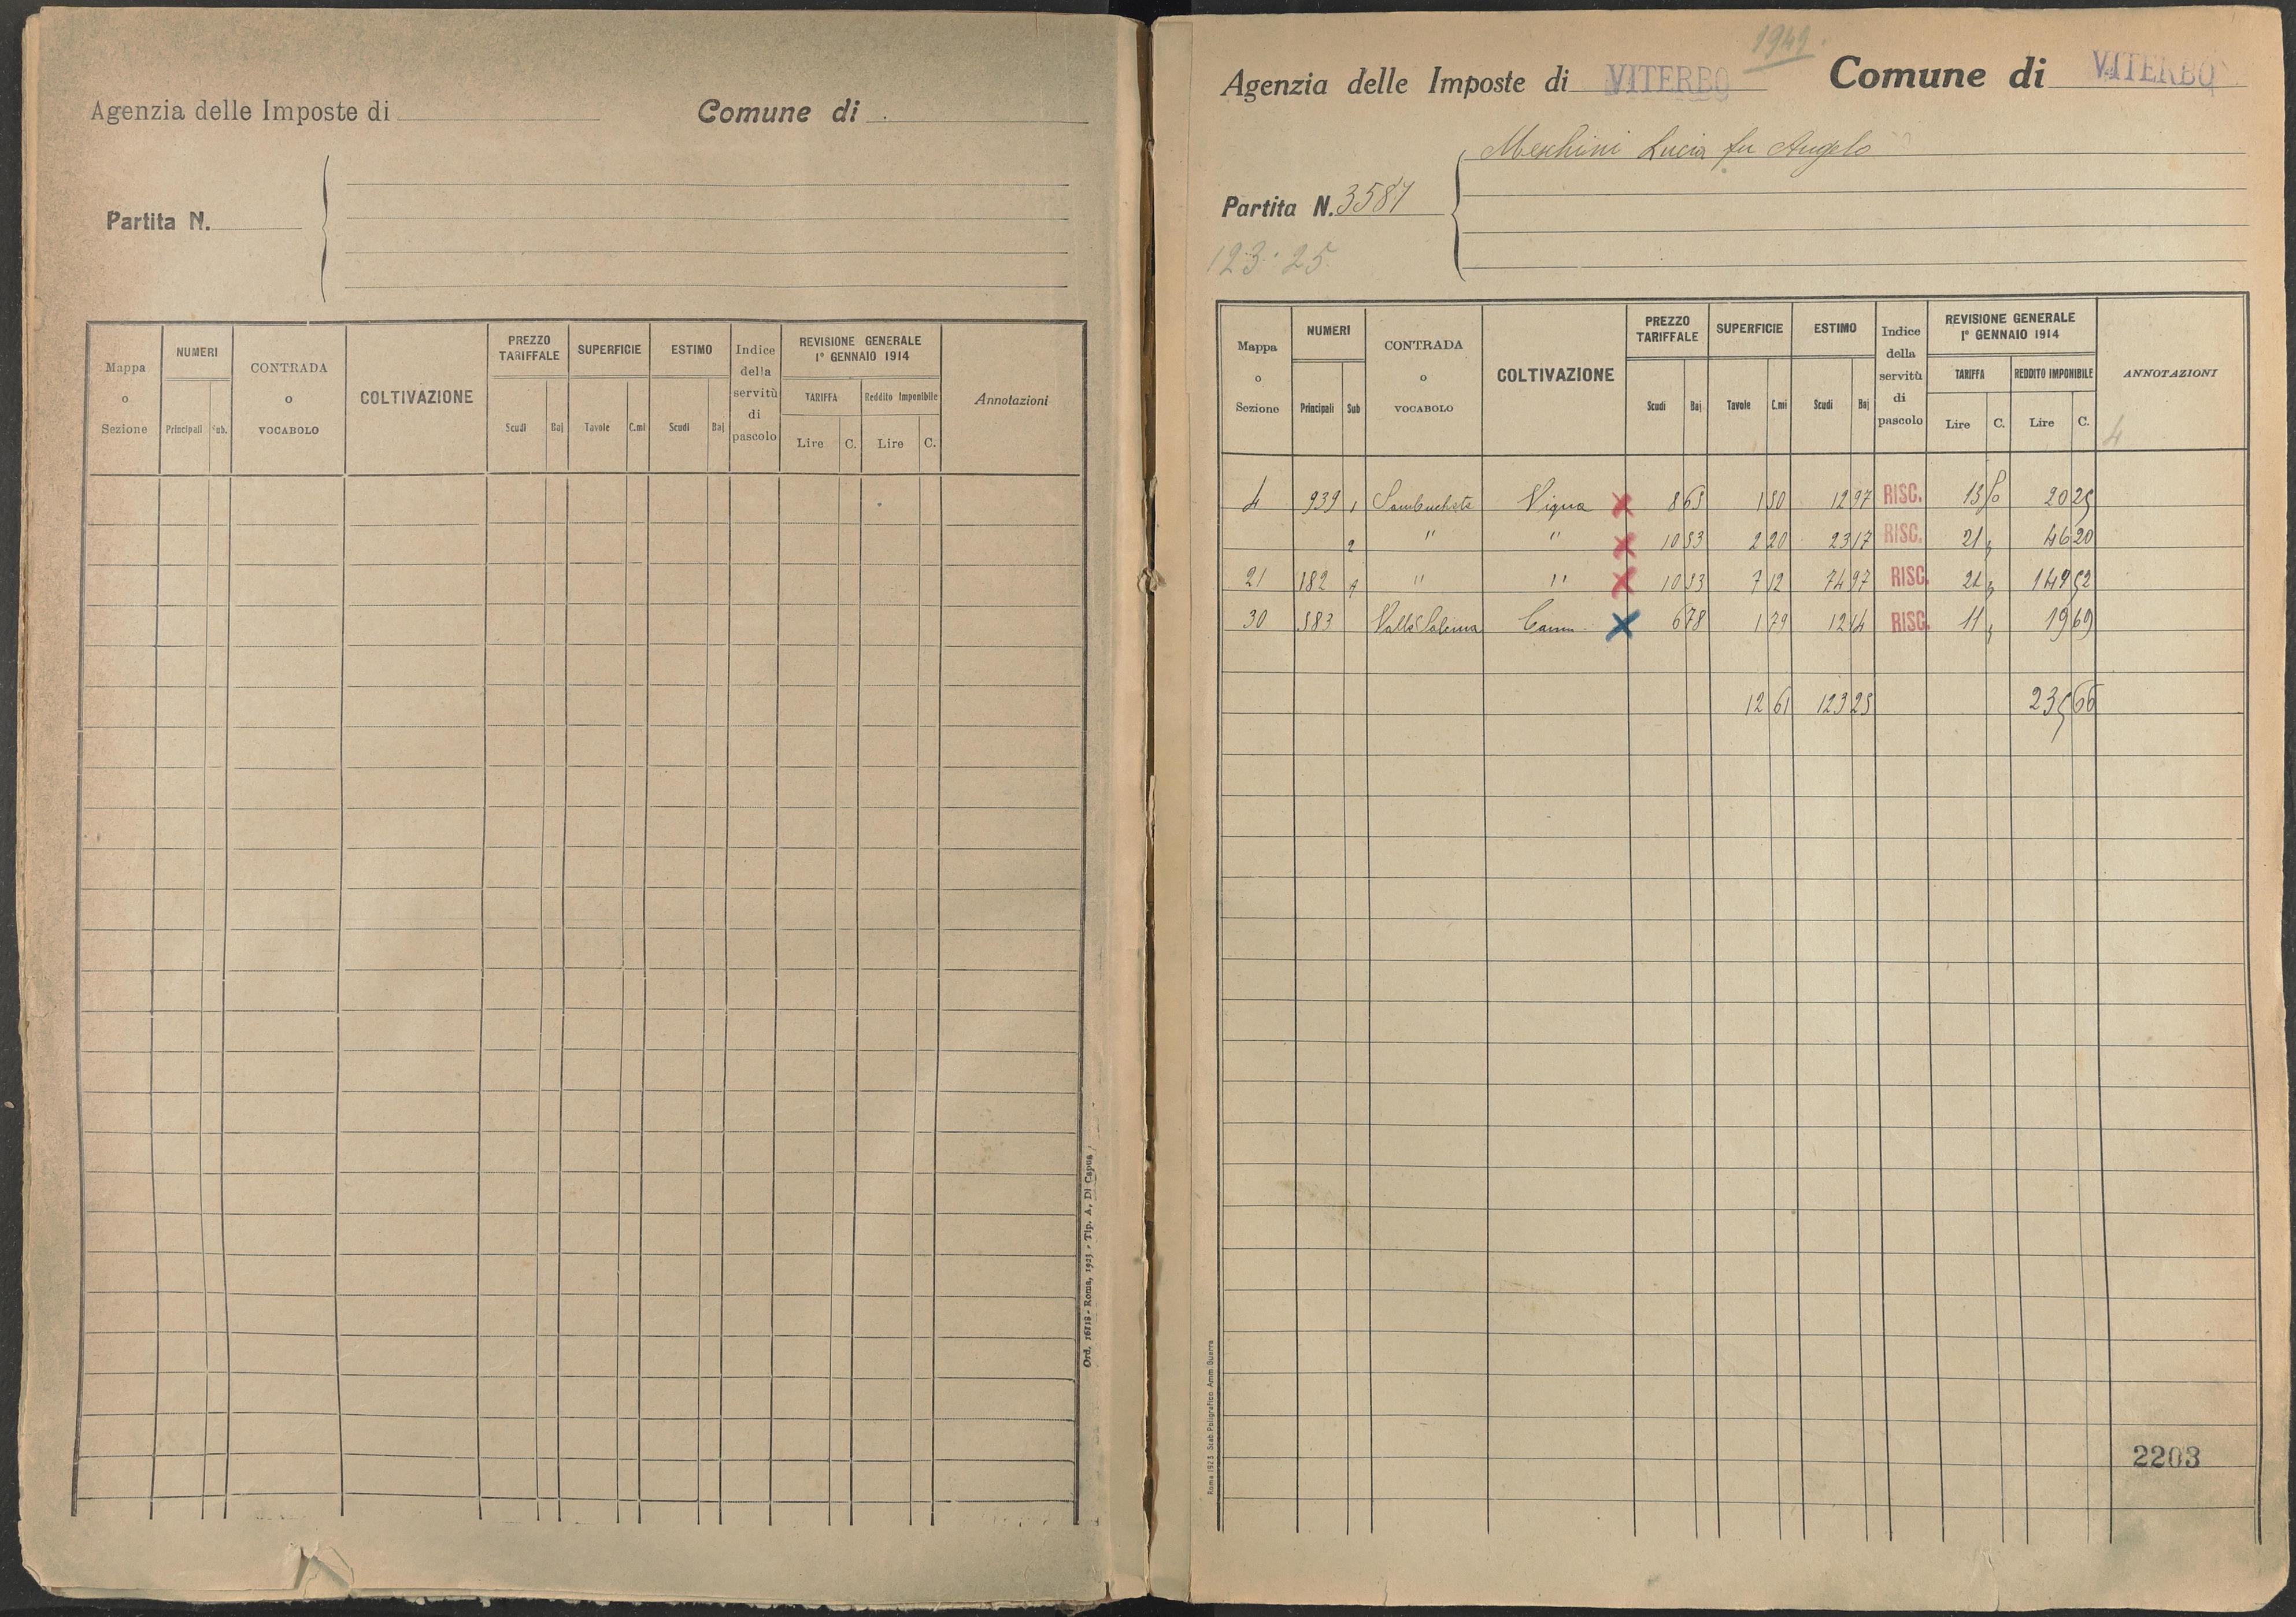 Agenzia delle Imposte di
Comune di
Partita N.
Mappa o Sezione
NUMERI
Principali
Sub.
CONTRADA o VOCABOLO
COLTIVAZIONE
PREZZO TARIFFALE
Scudi
Baj
SUPERFICIE
Tavole
C.mi
ESTIMO
Scudi
Baj
Indice della servitù di pascolo
REVISIONE GENERALE
1º GENNAIO 1914
TARIFFA
Reddito Imponibile
Lire
C.
Lire
C.
Annotazioni
Ord. 16118 - Roma, 1923 - Tip. A. Di Capua
1949
Agenzia delle Imposte di VITERBO
Comune di VITERBO
Meschini Lucia fu Angelo
Partita N. 3587
123.25
Mappa o Sezione
NUMERI
Principali
Sub
CONTRADA o VOCABOLO
COLTIVAZIONE
PREZZO TARIFFALE
Scudi
Baj
SUPERFICIE
Tavole
C.mi
ESTIMO
Scudi
Baj
Indice della servitù di pascolo
REVISIONE GENERALE
1º GENNAIO 1914
TARIFFA
REDDITO IMPONIBILE
Lire
C.
Lire
C.
ANNOTAZIONI
4
4 939 1 Vigna 8 65 1 50 12 97 RISC. 13 50 20 25
2 " " 10 53 2 20 23 17 RISC. 21 46 20
21 182 " " 10 53 7 12 74 97 RISC. 21 149 52
30 583 Cann 6 78 1 79 12 14 RISC. 11 19 69
12 61 123 25 235 66
Roma 1923 Stab. Poligrafico Amm. Guerra
2203